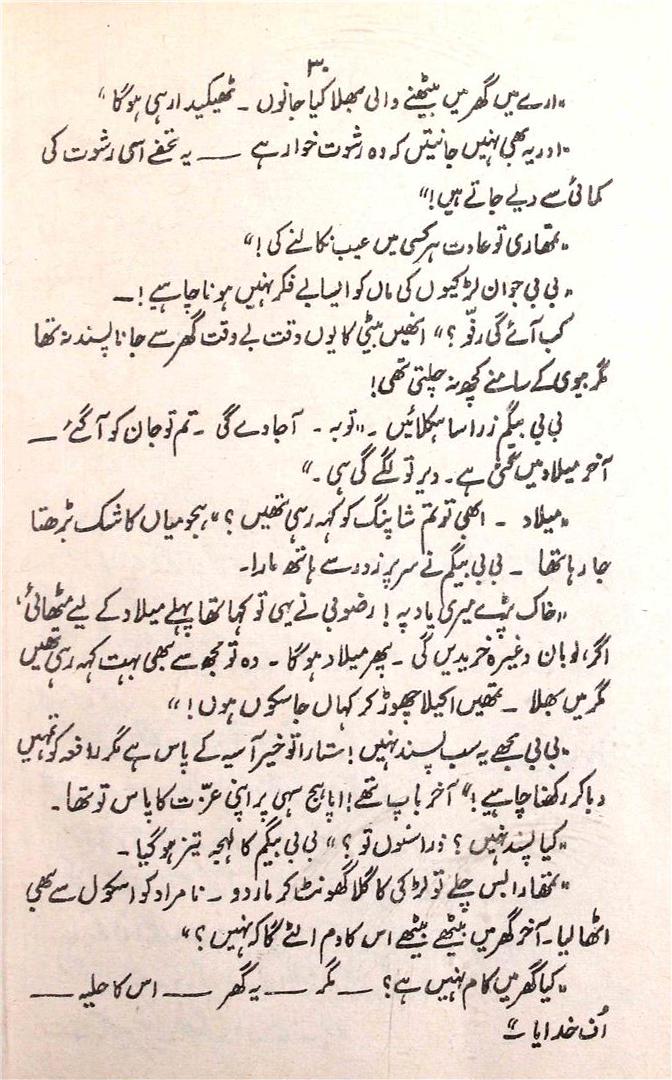 ۳۰
"ارے میں گھر میں بیٹھنے والی بھلا کیا جانوں ۔ ٹھیکیدار ہی ہوگا"
"اور یہ بھی نہیں جانتیں کہ وہ رشوت خوار ہے ــــ یہ تحفے اسی رشوت کی
کمائی سے دیے جاتے ہیں!"
"تمھاری تو عادت ہر کسی میں عیب نکالنے کی!"
"بی بی جوان لڑکیوں کی ماں کو ایسا بے فکر نہیں ہونا چاہیے! ــ
کب آئے گی رفّو؟" انھیں بیٹی کا یوں وقت بے وقت گھر سے جانا پسند نہ تھا
مگر بیوی کے سامنے کچھ نہ چلتی تھی!
بی بی بیگم ذرا سا ہکلائیں ۔ "توبہ ۔ آجاوے گی ۔ تم تو جان کو آگئے ــــ
آخر میلاد میں گئی ہے ۔ دیر تو لگے گی ہی ۔"
"میلاد ۔ ابھی تو تم شاپنگ کو کہہ رہی تھیں؟" ہجو میاں کا شک بڑھتا
جا رہا تھا ۔ بی بی بیگم نے سر پر زور سے ہاتھ مارا ۔
"خاک پڑے میری یاد پہ! رضو بی نے یہی تو کہا تھا پہلے میلاد کے لیے مٹھائی،
اگر، لوبان وغیرہ خریدیں گی ۔ پھر میلاد ہوگا ۔ وہ تو مجھ سے بھی بہت کہہ رہی تھیں
مگر میں بھلا ۔ تمھیں اکیلا چھوڑ کر کہاں جا سکوں ہوں!"
"بی بی مجھے یہ سب پسند نہیں! ستارا تو خیر آسیہ کے پاس ہے مگر رافعہ کو تمہیں
دبا کر رکھنا چاہیے!" آخر باپ تھے! اپاہج سہی پر اپنی عزّت کا پاس تو تھا ۔
"کیا پسند نہیں؟ ذرا سنوں تو؟" بی بی بیگم کا لہجہ تیز ہوگیا ۔
"تمھارا بس چلے تو لڑکی کا گلا گھونٹ کر مار دو ۔ نامراد کو اسکول سے بھی
اٹھا لیا ۔ آخر گھر میں بیٹھے بیٹھے اس کا دم الٹے گا کہ نہیں؟"
"کیا گھر میں کام نہیں ہے؟ ــــ مگر ــــ یہ گھر ــــ اس کا حلیہ ــــ
اُف خدایا ــ"